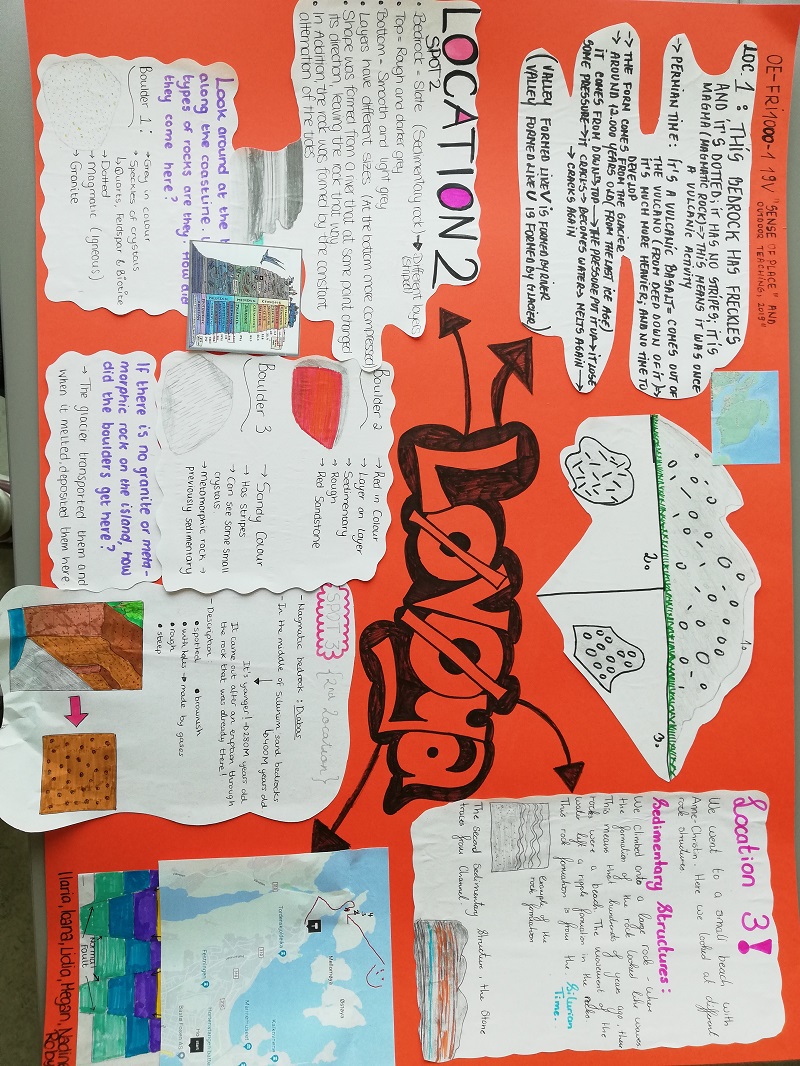 OE-FRI1000-1 19V "SENSE OF PLACE" AND
OUTDOOR TEACHING, 2019"
LOC 1: THIS BEDROCK HAS FRECKLES
AND IT'S DOTTED; IT HAS NO STRIPES, IT'S
MAGMA (MAGMATIC ROCK) => THIS MEANS IT WAS ONCE
A VULCANIC ACTIVITY
-> PERMIAN TIME: IT'S A VULCANIC BASALT= COMES OUT OF
THE VULCANO (FROM DEEP DOWN OF IT)
IT'S MUCH MORE HEAVIER, AND NO TIME TO
DEVELOP
-> THE FORM COMES FROM THE GLACIER
-> AROUND 12.000 YEARS OLD/ FROM THE LAST ICE AGE)
IT COMES FROM DOWN → TOP → THE PRESSURE PUT IT UP → IT LOSE
SOME PRESSURE → IT CRACKS → BECOMES WATER → MELTS AGAIN →
→ CRACKS AGAIN
VALLEY FORMED LIKE V IS FORMED BY RIVER
(VALLEY FORMED LIKE U IS FORMED BY GLACIER)
LOCATION 2
SPOT 2
• Bedrock = Slate (Sedimentary rock) → Different layers
(stripes)
• Top = Rough and darker grey
• Bottom = Smooth and light grey
• Layers have different sizes (At the bottom more compressed
• Shape was formed from a river that at some point changed
its direction, leaving the rock that way
• In Addition, the rock was formed by the constant
alternation of the tides
Look around at the
along the coastline.
types of rocks are they. How did
they come here?
Boulder 1:
→ Grey in colour
→ Speckles of crystals
↳ Quarts, Feldspar & Biotite
→ Dotted
→ Magmatic (igneous)
→ Granite
Boulder 2
→ Red in Colour
→ Layer on Layer
→ Sedimentary
→ Rough
→ Red Sandstone
Boulder 3
→ Sandy Colour
→ Has stripes
→ Can see some small
crystals
→ metamorphic rock →
previously sedimentary
If there is no granite or meta-
morphic rock on the island, how
did the boulders get here?
→ The glacier transported them and
when it melted, deposited them here
LØVØYA
1.
2.
3.
SPOT 3
{2nd Location}
- Magmatic bedrock: Diabas
- In the middle of Silurium sand bedrocks
↳ 400M years old
It's yunger! ↳ 280M years old
It came out after an eruption through
the rock that was already there!
- Description
• spotted • brownish
• with holes → made by gases
• rough
• steep
Location 3!
We went to a small beach with
Anne Christin. Here we looked at different
rock structures.
Sedimentary Structures:
We climbed onto a large rock - where
the formation of the rock looked like waves
This means that hundreds of years ago, the
rocks were a beach. The movement of the
water left a ripple formation in the rocks.
This rock formation is from the Silurian
Time.
example of the
rock formation
The Second Sedimentary Structure, the Stone
traces from Channel
Normal
Fault
Ilaria, Ioana, Lidia, Megan, Nadine
Roby